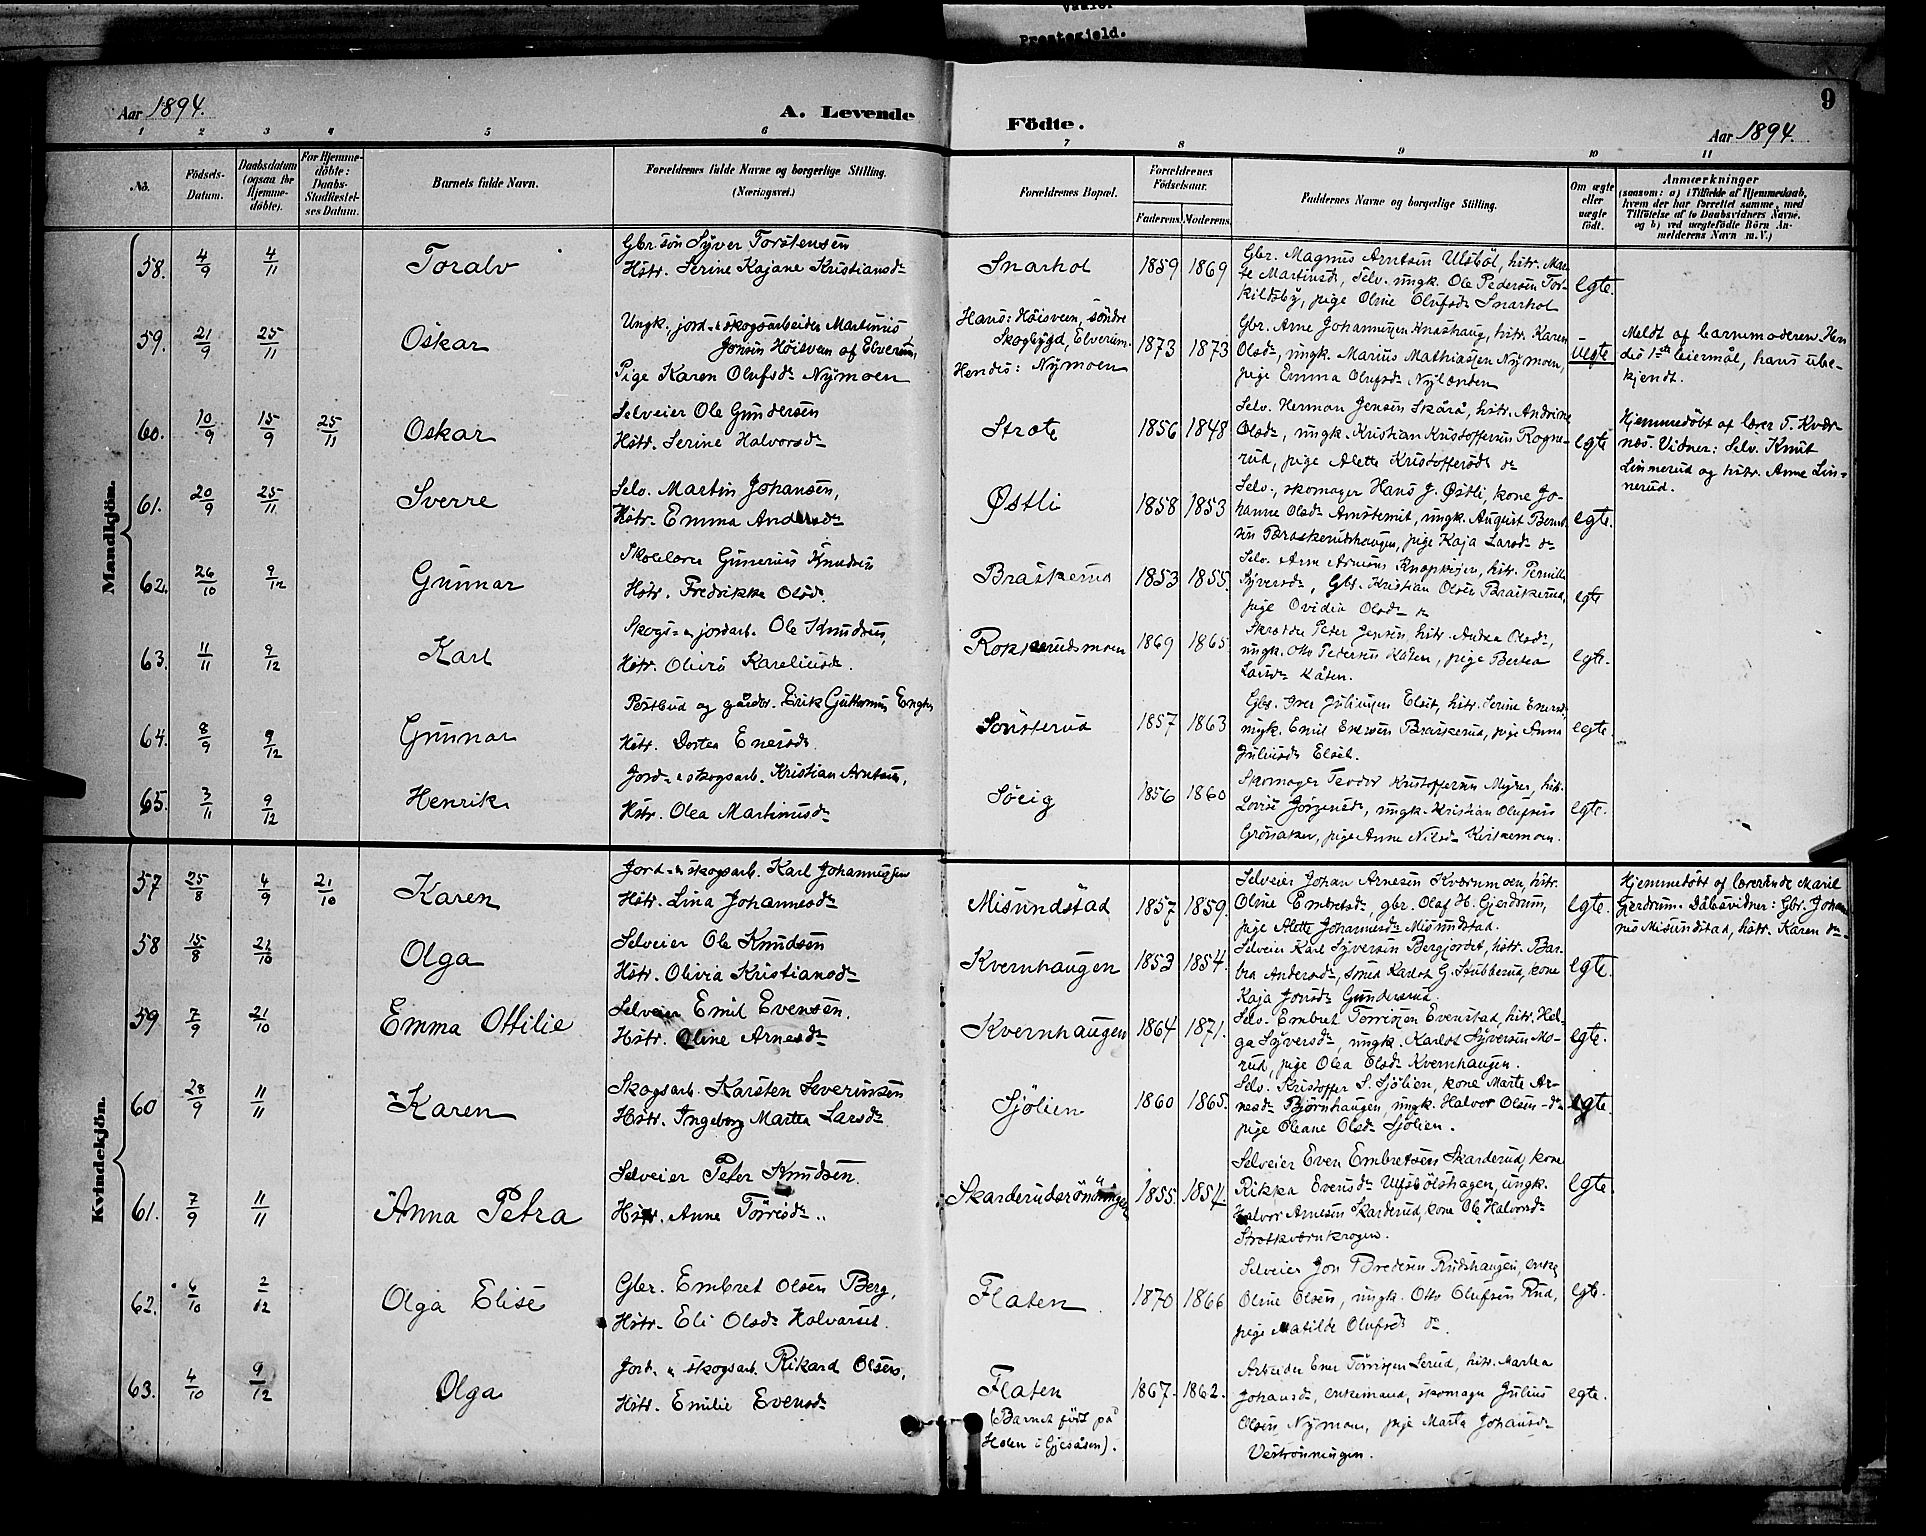 Prestegjeld.
Aar 1894.
A. Levende
Födte.
Aar 1894.
9
1 2 3 4 5 6 7 8 9 10 11
No.
Födsels-
Datum.
Daabsdatum
(ogsaa for
Hjemme-
döbte).
For Hjemme-
döbte:
Daabs-
Stadfæstel-
ses Datum.
Barnets fulde Navn.
Forældrenes fulde Navne og borgerlige Stilling.
(Næringsvei.)
Forældrenes Bopæl.
Forældrenes
Födselsaar.
Faderens. Moderens.
Faddernes Navne og borgerlige Stilling.
Om ægte
eller
uægte
födt.
Anmærkninger
(saasom: a) i Tilfælde af Hjemmedaab,
hvem der har forrettet samme, med
Tilföielse af to Daabsvidners Navne.
og b) ved uægtefödte Börn An-
melderens Navn m. V.)
Mandkjön.
58. 4/9 4/11 Toralv
Gbr. sön Syver Torstensen
Hstr. Serine Kajane Kristiansdr
Snarhol 1859 1869
Gbr. Magnus Arntsen Ulsböl, hstr. Mar-
te Martinsdr, Selv. ungk. Ole Pedersen Tor-
kildsby, pige Oline Olufsdr Snarhol
egte.
59. 21/9 25/11 Oskar
Ungk. jord- & skogsarbeider Martinius
Jonsen Höisveen af Elverum,
Pige Karen Olufsdr Nymoen
Hans: Höisveen, söndre
Skogbygd, Elverum.
Hendes: Nymoen
1873 1873
Gbr. Arne Johannesen Knashaug, hstr. Karen
Olsdr, ungk. Marius Mathiassen Nymoen,
pige Emma Olufsdr Nylænden
Uegte
Meldt af barnemoderen Hen
des 1ste leiermål, hans ube-
kjendt.
60. 10/9 15/9 25/11 Oskar
Selveier Ole Gundersen
Hstr. Serine Halvorsdr
Strate 1856 1848
Selv. Herman Jensen Skårå, hstr. Andrine
Olsdr, ungk. Kristian Kristoffersen Rogne-
rud, pige Alette Kristoffersdr dr
egte
Hjemmedöbt af lærer T. Kvær-
nes. Vidner: Selv. Knut
Linnerud og hstr. Anne Lin-
nerud.
61. 20/9 25/11 Sverre
Selv. Martin Johansen,
Hstr. Emma Andersdr
Østli 1858 1853
Selv., skomager Hans J. Østli, kone Jo-
hanne Olsdr, ungk. August Bernt-
sen Braskerudshaugen, pige Kaja Larsdr dr
egte.
62. 26/10 9/12 Gunnar
Skolelærer Gunerius Knudsen
Hstr. Fredrikke Olsdr.
Braskerud 1853 1855.
Selv. Arne Arnesen, hstr. Pernille
Syversdr, Gbr. Kristian Olsen Braskerud,
pige Ovidia Olsdr
egte
63. 11/11 9/12 Karl
Skogs- & jordarb. Ole Knudsen,
Hstr. Olivia Kareliusdr.
Rokkerudsmoen 1869 1865
Skrædder Peter Jensen, hstr. Andrea Olsdr,
ungk. Otto Pedersen Kåten, pige Bertea
Larsdr Kåten.
egte.
64. 8/9 9/12 Gunnar
Postbud og gårdbr. Erik Guttormsen Enger
Hstr. Dortea Enersdr.
Sönsterud 1857 1863
Gbr. Iver Juliussen Elset, hstr. Serine Enersdr,
ungk. Emil Eriksen Braskerud, pige Anna
Juliusdr Elset.
egte.
65. 3/11 9/12 Henrik
Jord- & skogsarb. Kristian Arntsen,
Hstr. Olea Martinusdr
Söeig 1856 1860
Skomager Teodor Kristoffersen Myrer, hstr.
Lovise Jörgensdr, ungk. Kristian Olufsen
Grönaker, pige Anne Nilsdr Kirkemoen.
egte.
Kvindekjön.
57 25/8 4/9 21/10 Karen
Jord- & skogsarb. Karl Johannessen
Hstr. Lina Johannesdr
Misundstad 1857 1859.
Selveier Johan Arnesen Kværnmoen, hstr.
Oline Embretsdr, gbr. Olaf H. Gjerdrum,
pige Alette Johannesdr Misundstad.
egte.
Hjemmedöbt af lærerinde Marie
Gjerdrum. Dåbsvidner: Gbr. Johan
nes Misundstad, hstr. Karen dr
58 15/8 21/10 Olga
Selveier Ole Knudsen
Hstr. Olivia Kristiansdr
Kvernhaugen 1853 1854.
Selveier Karl Syversen Bergjordet, hstr. Bar-
bra Andersdr, smed Karlot G. Stubberud, kone
Kaja Jonsdr Gunderssrud.
egte.
59 7/9 21/10 Emma Ottilie
Selveier Emil Evensen.
Hstr. Oline Arnesdr
Kvernhaugen 1864 1871.
Selv. Embret Torrissen Evenstad, hstr. Hel-
ga Syversdr, ungk. Karlot Syversen Mo-
rud, pige Olea Olsdr Kvernhaugen.
egte.
60 28/9 11/11 Karen
Skogsarb. Karsten Severinsen
Hstr. Ingeborg Martea Larsdr
Sjölien 1860 1865.
Selv. Kristoffer S. Sjölien, kone Marte Ar-
nesdr Björnhaugen, ungk. Halvor Olsen dr
pige Oleane Olsdr Sjölien.
egte.
61. 7/9 11/11 Anna Petra
Selveier Peter Knudsen.
Hstr. Anne Törrisdr
Skarderudsrönningen 1855. 1854.
Selveier Even Embretsen Skarderud, kone
Rikka Evensdr Ulfsbölshagen, ungk.
Halvor Arnesen Skarderud, kone Ole Halvorsdr
Stratkværnkrogen.
egte.
62. 6/10 2/12 Olga Elise
Gbr. Embret Olsen Berg,
Hstr. Eli Olsdr Halvarset.
Flaten 1870 1866
Selveier Jon Bredesen Rudshaugen, enke
Oline Olsen, ungk. Otto Olufsen Rud,
pige Matilde Olufsdr dr.
egte.
63. 4/10 9/12 Olga
Jord- & skogsarb. Rikard Olsen,
Hstr. Emilie Evensdr
Flaten
(Barnet födt på
Holen i Gjesåsen).
1867. 1862.
Arbeider Ener Törrissen Lerud, hstr. Martea
Johansdr, enkemand, skomager Julius
Olsen Nymoen, pige Marta Johansdr
Veströnningen.
egte.